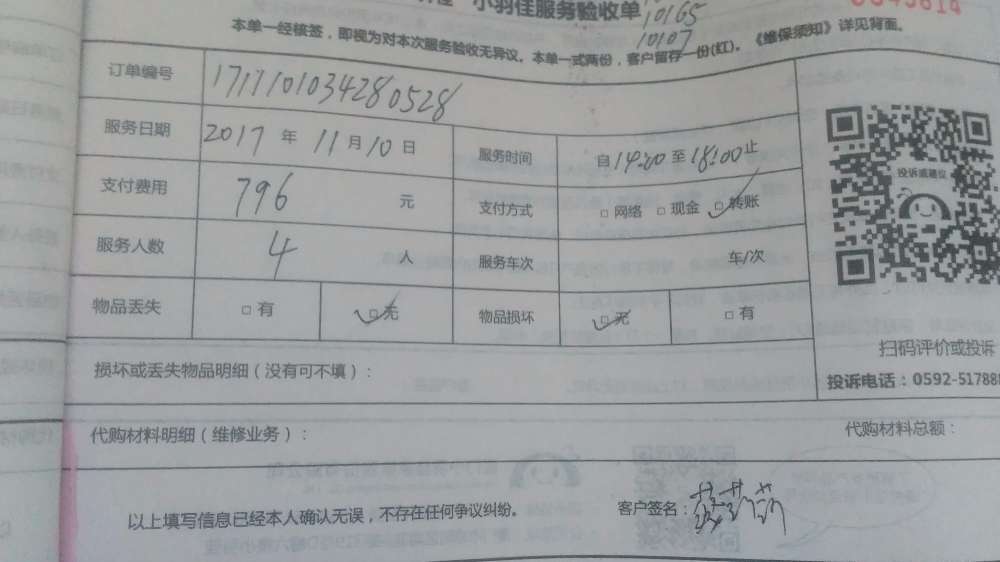 小羽佳服务验收单
10165
10107
本单一经核签，即视为对本次服务验收无异议。本单一式两份，客户留存一份(红)。《维保须知》详见背面。
订单编号 1711101034280528
服务日期 2017 年 11 月 10 日 服务时间 自 14:00 至 18:00 止
支付费用 796 元 支付方式 □ 网络 □ 现金 □ 转账
服务人数 4 人 服务车次 车/次
物品丢失 □ 有 □ 无 物品损坏 □ 无 □ 有
投诉或建议
扫码评价或投诉
投诉电话：0592-517888
损坏或丢失物品明细（没有可不填）：
代购材料明细（维修业务）： 代购材料总额：
以上填写信息已经本人确认无误，不存在任何争议纠纷。 客户签名：